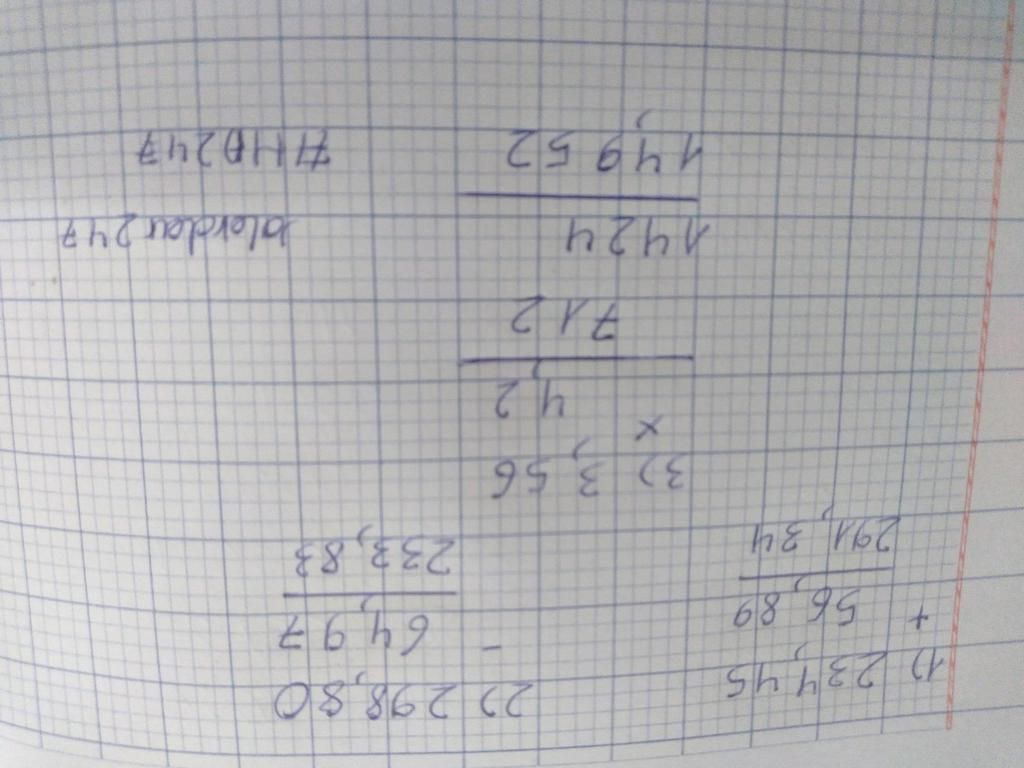 1) 234,45
+ 56,89
291,34
2) 298,80
- 64,97
233,83
3) 3,56
x 4,2
712
1424
14,952
blerdar247
AHD247